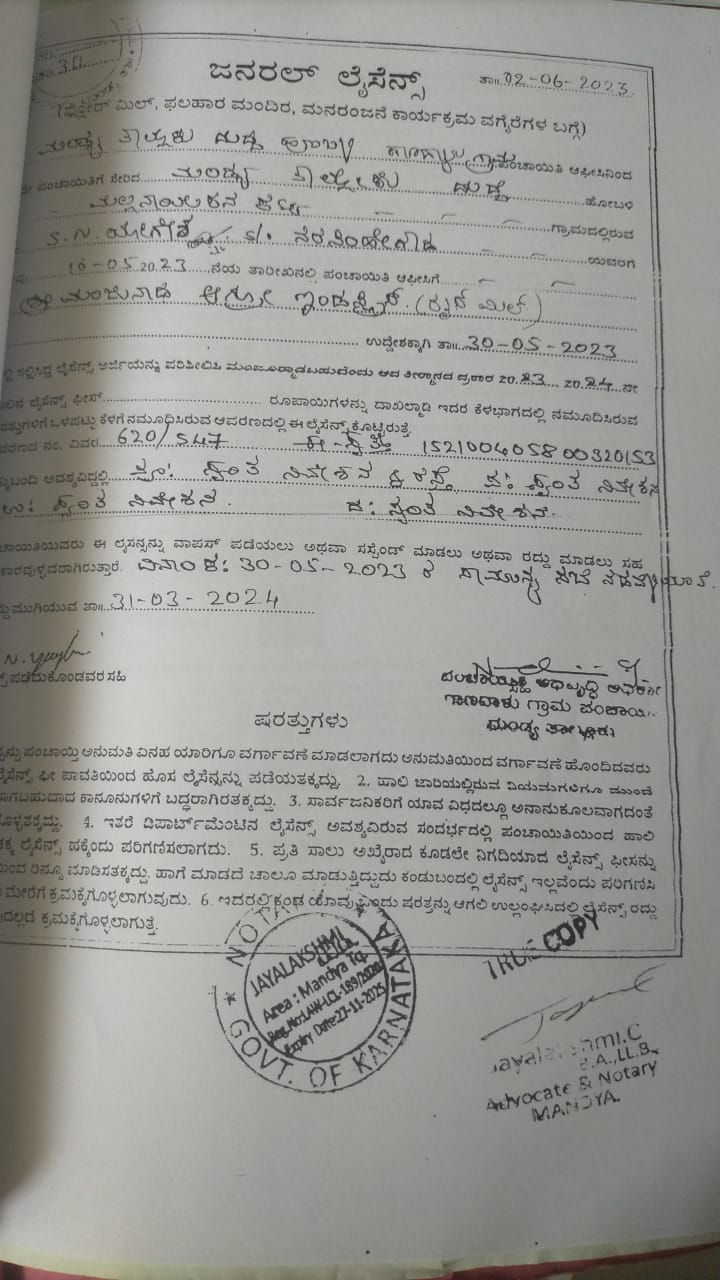 ಸಂ. 311
ಜನರಲ್ ಲೈಸೆನ್ಸ್ ತಾ॥ 02-06-2023
(ಫ್ಲೋರ್ ಮಿಲ್, ಫಲಹಾರ ಮಂದಿರ, ಮನರಂಜನೆ ಕಾರ್ಯಕ್ರಮ ವಗೈರೆಗಳ ಬಗ್ಗೆ)
ಮಂಡ್ಯ ತಾಲ್ಲೂಕು ದುದ್ದ ಹೋಬಳಿ ಗ್ರಾಮ ಪಂಚಾಯಿತಿ ಆಫೀಸಿನಿಂದ
ಪಂಚಾಯಿತಿಗೆ ಸೇರಿದ ಮಂಡ್ಯ ತಾಲ್ಲೂಕು ದುದ್ದ ಹೋಬಳಿ
ಮಲ್ಲನಾಯಕನ ಕಟ್ಟೆ ಗ್ರಾಮದಲ್ಲಿರುವ
S.N. ಯೋಗೇಶ s/o ನರಸಿಂಹೇಗೌಡ ಯವರಿಗೆ
16-05 2023 ನೆಯ ತಾರೀಖಿನಲ್ಲಿ ಪಂಚಾಯಿತಿ ಆಫೀಸಿಗೆ
ಶ್ರೀ ಮಂಜುನಾಥ ಆಗ್ರೋ ಇಂಡಸ್ಟ್ರೀಸ್. (ರೈಸ್ ಮಿಲ್)
ಉದ್ದೇಶಕ್ಕಾಗಿ ತಾ॥ 30-05-2023
ಸಲ್ಲಿಸಿದ್ದ ಲೈಸೆನ್ಸ್ ಅರ್ಜಿಯನ್ನು ಪರಿಶೀಲಿಸಿ ಮಂಜೂರ್ಮಾಡಬಹುದೆಂದು ಆದ ತೀರ್ಮಾನದ ಪ್ರಕಾರ 2023 2024 ನೇ
ಲೈಸೆನ್ಸ್ ಫೀಸ್ ರೂಪಾಯಿಗಳನ್ನು ದಾಖಲ್ಮಾಡಿ ಇದರ ಕೆಳಭಾಗದಲ್ಲಿ ನಮೂದಿಸಿರುವ
ಷರತ್ತುಗಳಿಗೆ ಒಳಪಟ್ಟು ಕೆಳಗೆ ನಮೂದಿಸಿರುವ ಆವರಣದಲ್ಲಿ ಈ ಲೈಸೆನ್ಸ್ ಕೊಟ್ಟಿರುತ್ತೆ.
ಆವರಣದ ನಂ. ವಿವರ 620/547 ಈ-ಸ್ವತ್ತು 152100405800320153
ಚಕ್ಕುಬಂದಿ ಅವಶ್ಯವಿದ್ದಲ್ಲಿ ಪೂ: ಸ್ವಂತ ನಿವೇಶನ & ರಸ್ತೆ ಪ: ಸ್ವಂತ ನಿವೇಶನ
ಉ: ಸ್ವಂತ ನಿವೇಶನ. ದ: ಸ್ವಂತ ನಿವೇಶನ.
ಪಂಚಾಯಿತಿಯವರು ಈ ಲೈಸನ್ಸನ್ನು ವಾಪಸ್ ಪಡೆಯಲು ಅಥವಾ ಸಸ್ಪೆಂಡ್ ಮಾಡಲು ಅಥವಾ ರದ್ದು ಮಾಡಲು ಸಹ
ಅಧಿಕಾರವುಳ್ಳವರಾಗಿರುತ್ತಾರೆ. ದಿನಾಂಕ: 30-05-2023 ರ ಸಾಮಾನ್ಯ ಸಭೆ ನಡವಳಿಯಂತೆ.
ಮುಗಿಯುವ ತಾ॥ 31-03-2024
ಪಡೆದುಕೊಂಡವರ ಸಹಿ
ಪಂಚಾಯ್ತಿ ಅಭಿವೃದ್ಧಿ ಅಧಿಕಾರಿ
ಗಾಣದಾಳು ಗ್ರಾಮ ಪಂಚಾಯಿ
ಮಂಡ್ಯ ತಾಲ್ಲೂಕು
ಷರತ್ತುಗಳು
ಪಂಚಾಯ್ತಿ ಅನುಮತಿ ವಿನಹ ಯಾರಿಗೂ ವರ್ಗಾವಣೆ ಮಾಡಲಾಗದು ಅನುಮತಿಯಿಂದ ವರ್ಗಾವಣೆ ಹೊಂದಿದವರು
ಲೈಸೆನ್ಸ್ ಫೀ ಪಾವತಿಯಿಂದ ಹೊಸ ಲೈಸೆನ್ಸನ್ನು ಪಡೆಯತಕ್ಕದ್ದು. 2. ಹಾಲಿ ಜಾರಿಯಲ್ಲಿರುವ ನಿಯಮಗಳಿಗೂ ಮುಂದೆ
ಕಾನೂನುಗಳಿಗೆ ಬದ್ಧರಾಗಿರತಕ್ಕದ್ದು. 3. ಸಾರ್ವಜನಿಕರಿಗೆ ಯಾವ ವಿಧದಲ್ಲೂ ಅನಾನುಕೂಲವಾಗದಂತೆ
4. ಇತರೆ ಡಿಪಾರ್ಟ್‌ಮೆಂಟಿನ ಲೈಸೆನ್ಸ್ ಅವಶ್ಯವಿರುವ ಸಂದರ್ಭದಲ್ಲಿ ಪಂಚಾಯಿತಿಯಿಂದ ಹಾಲಿ
ಲೈಸೆನ್ಸ್ ಹಕ್ಕೆಂದು ಪರಿಗಣಿಸಲಾಗದು. 5. ಪ್ರತಿ ಸಾಲು ಅಖೈರಾದ ಕೂಡಲೇ ನಿಗದಿಯಾದ ಲೈಸೆನ್ಸ್ ಫೀಸನ್ನು
ರಿನ್ಯೂ ಮಾಡಿಸತಕ್ಕದ್ದು. ಹಾಗೆ ಮಾಡದೆ ಚಾಲೂ ಮಾಡುತ್ತಿದ್ದುದು ಕಂಡುಬಂದಲ್ಲಿ ಲೈಸೆನ್ಸ್ ಇಲ್ಲವೆಂದು ಪರಿಗಣಿಸಿ
ಮೇರೆಗೆ ಕ್ರಮಕೈಗೊಳ್ಳಲಾಗುವುದು. 6. ಇದರಲ್ಲಿ ಕಂಡ ಯಾವುದೊಂದು ಷರತ್ತನ್ನು ಆಗಲಿ ಉಲ್ಲಂಘಿಸಿದಲ್ಲಿ ಲೈಸೆನ್ಸ್ ರದ್ದು
ಕ್ರಮಕೈಗೊಳ್ಳಲಾಗುತ್ತೆ.
NOTARY
JAYALAKSHMI
Area : Mandya Tq.
Reg.No:LAW-LCL-189/2020
Expiry Date:27-11-2025
GOVT. OF KARNATAKA
TRUE COPY
Jayalakshmi.C
B.A.,LL.B.,
Advocate & Notary
MANDYA.